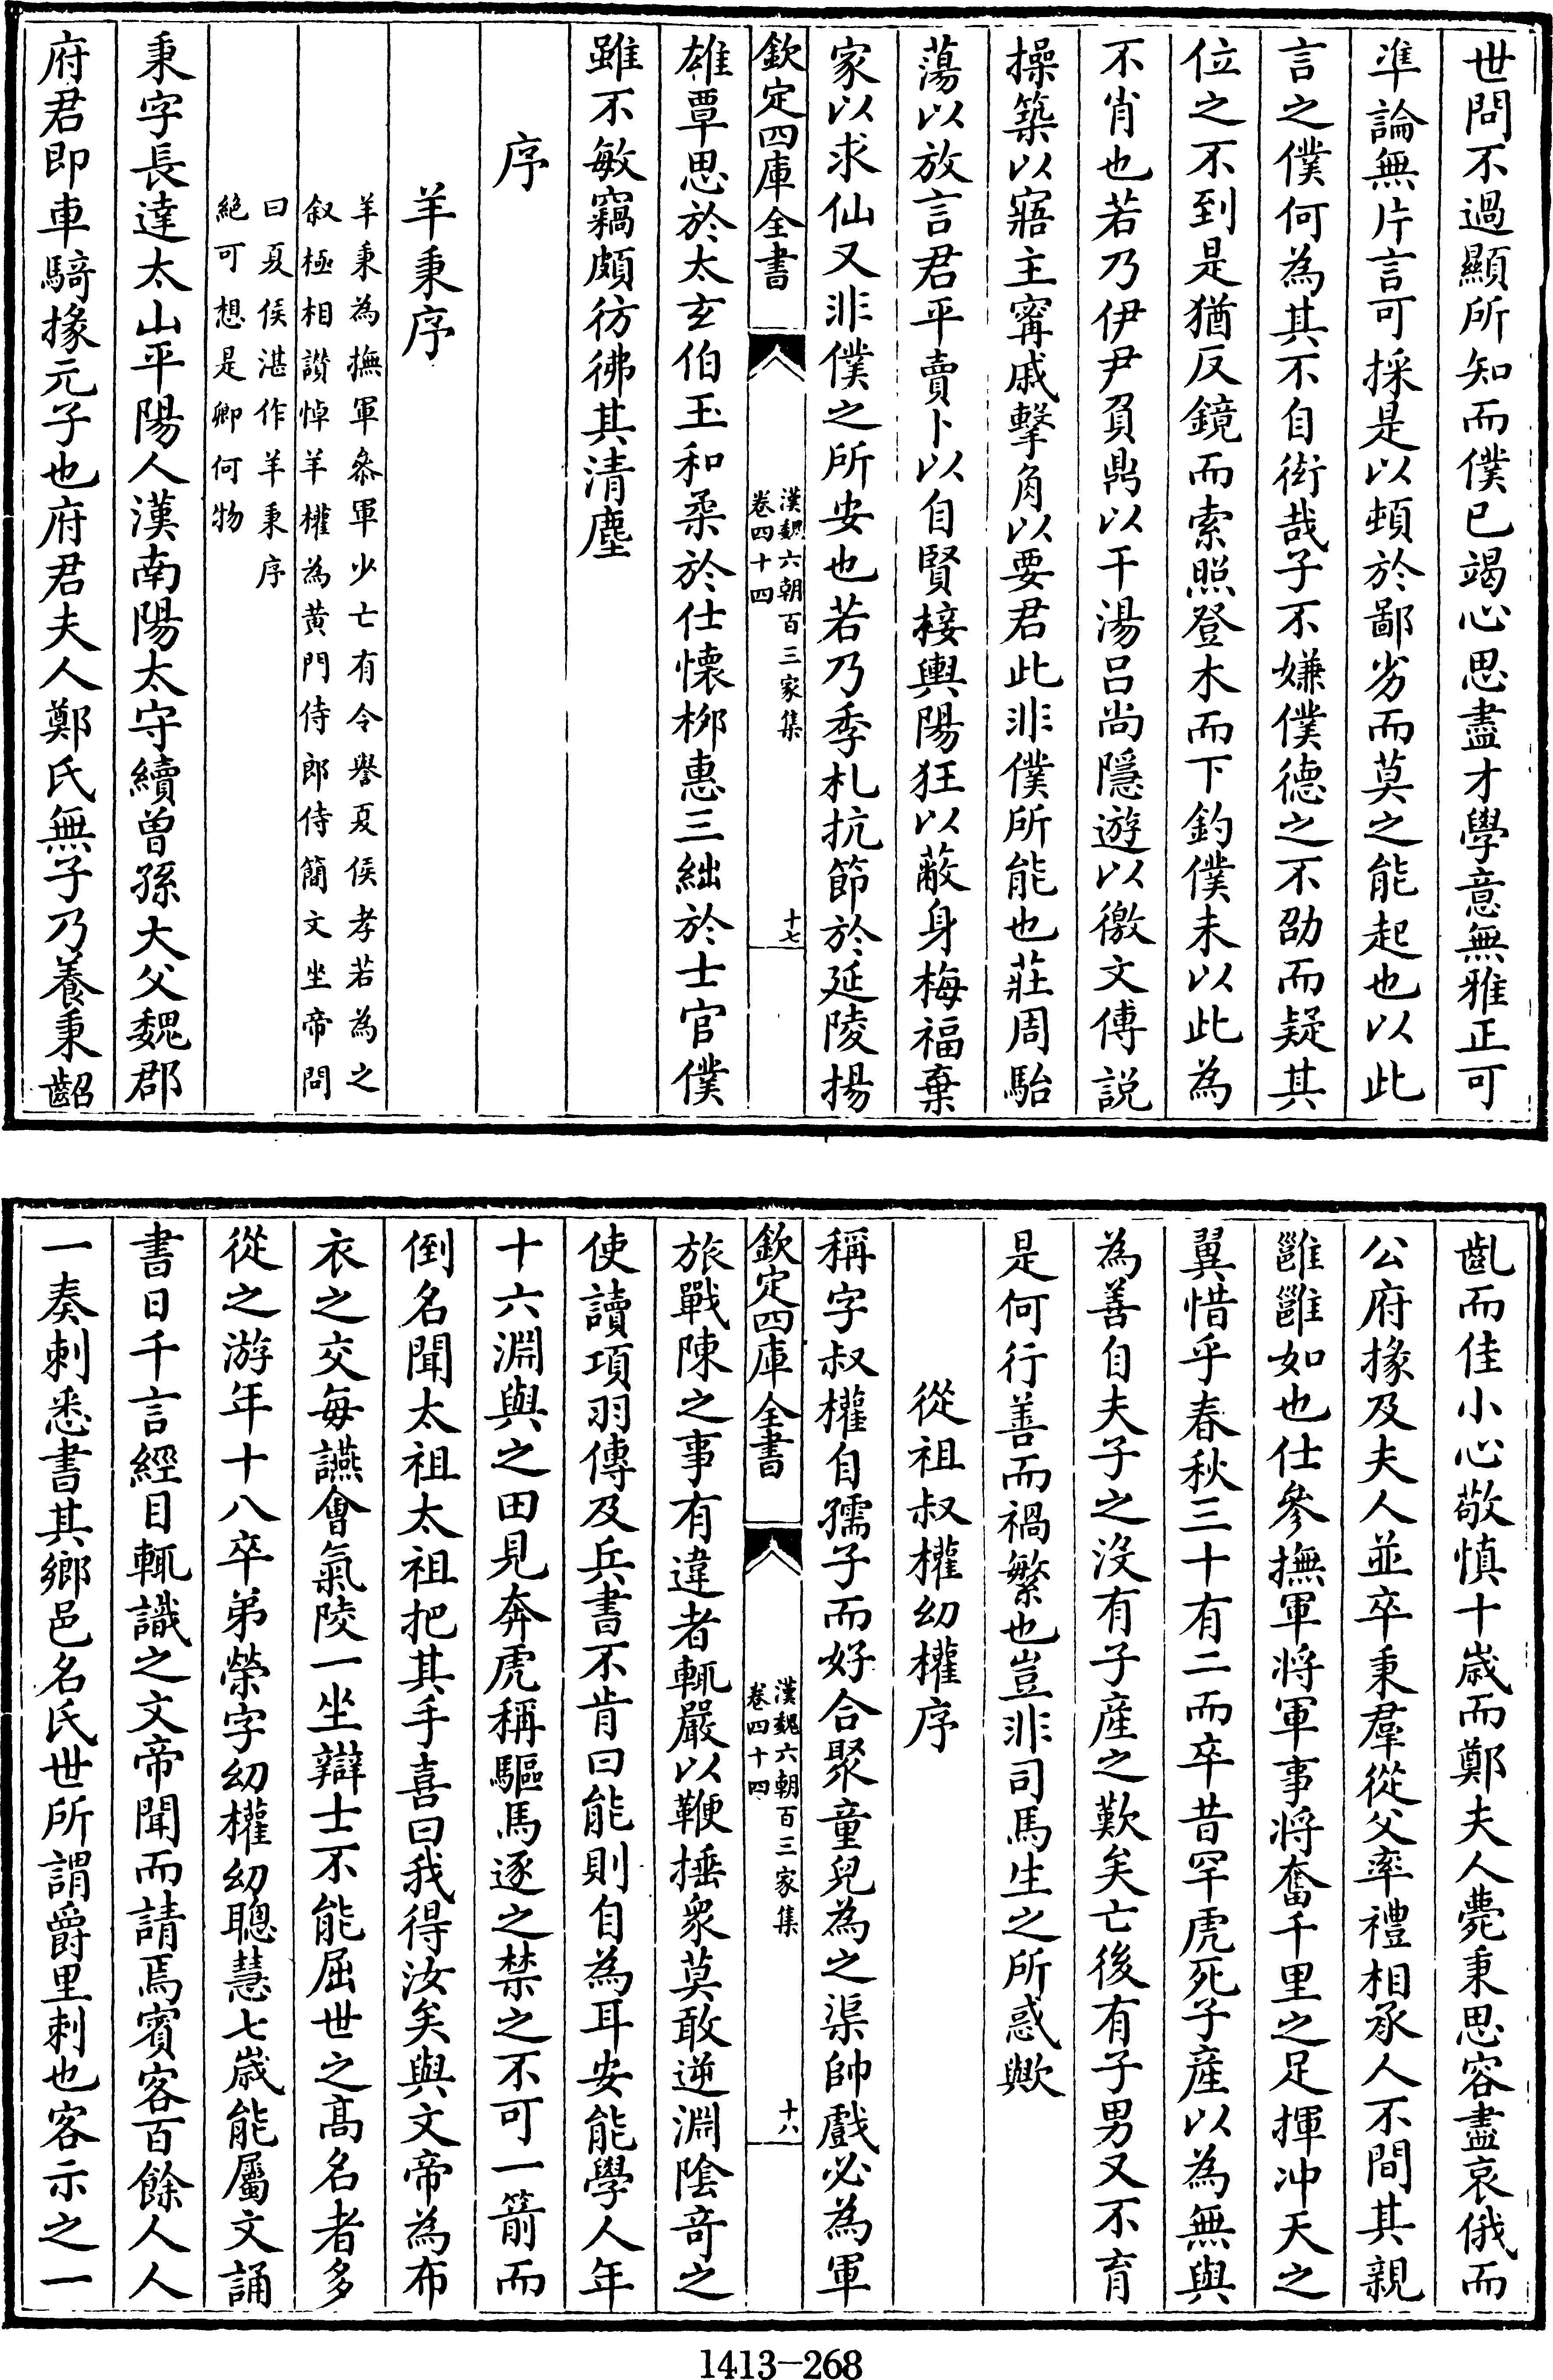 世問不過顯所知而僕已竭心思盡才學意無雅正可
準論無片言可採是以頓於鄙劣而莫之能起也以此
言之僕何為其不自衒哉子不嫌僕德之不劭而疑其
位之不到是猶反鏡而索照登木而下釣僕未以此為
不肖也若乃伊尹負鼎以干湯呂尚隱遊以徼文傅説
操築以寤主甯戚擊角以要君此非僕所能也莊周駘
蕩以放言君平賣卜以自賢接輿陽狂以蔽身梅福棄
家以求仙又非僕之所安也若乃季札抗節於延陵揚
欽定四庫全書
漢魏六朝百三家集
卷四十四
十七
雄覃思於太玄伯玉和柔於仕懐栁惠三絀於士官僕
雖不敏竊頗彷彿其清塵
序
羊秉序
羊秉為撫軍叅軍少亡有令譽夏侯孝若為之
叙極相讚悼羊權為黄門侍郎侍簡文坐帝問
曰夏侯湛作羊秉序
絶可想是卿何物
秉字長達太山平陽人漢南陽太守續曾孫大父魏郡
府君即車騎掾元子也府君夫人鄭氏無子乃養秉齠
齔而佳小心敬慎十歳而鄭夫人薨秉思容盡哀俄而
公府掾及夫人並卒秉羣從父率禮相承人不間其親
雝雝如也仕參撫軍將軍事將奮千里之足揮冲天之
翼惜乎春秋三十有二而卒昔罕虎死子産以為無與
為善自夫子之没有子産之歎矣亡後有子男又不育
是何行善而禍繁也豈非司馬生之所惑歟
從祖叔權幼權序
稱字叔權自孺子而好合聚童兒為之渠帥戲必為軍
欽定四庫全書
漢魏六朝百三家集
卷四十四
十八
旅戰陳之事有違者輒嚴以鞭捶衆莫敢逆淵陰竒之
使讀項羽傳及兵書不肯曰能則自為耳安能學人年
十六淵與之田見奔虎稱驅馬逐之禁之不可一箭而
倒名聞太祖太祖把其手喜曰我得汝矣與文帝為布
衣之交每讌會氣陵一坐辯士不能屈世之髙名者多
從之游年十八卒弟榮字幼權幼聰慧七歳能屬文誦
書日千言經目輒識之文帝聞而請焉賓客百餘人人
一奏刺悉書其鄉邑名氏世所謂爵里刺也客示之一
1413—268